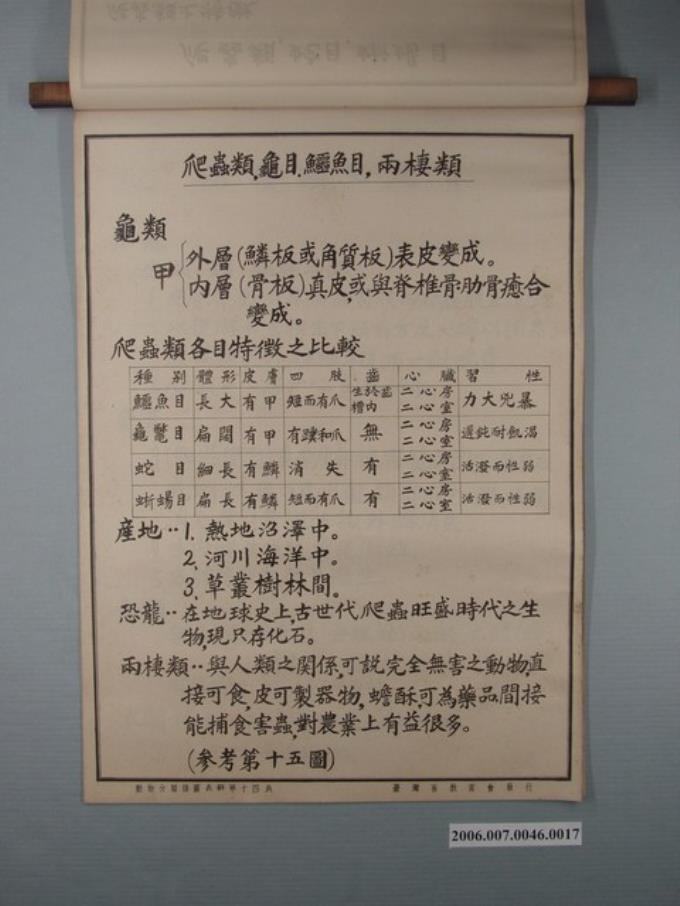 爬蟲類,龜目.鱷魚目,兩棲類
龜類
甲
外層(鱗板或角質板)表皮變成。
內層(骨板)真皮,或與脊椎骨肋骨癒合
變成。
爬蟲類各目特徵之比較
種別 體形 皮膚 四肢 齒 心臟 習性
鱷魚目 長大 有甲 短而有爪 生於齒槽內 二心房二心室 力大兇暴
龜鼈目 扁闊 有甲 有蹼和爪 無 二心房二心室 遲鈍耐飢渴
蛇目 細長 有鱗 消失 有 二心房二心室 活潑而性弱
蜥蜴目 扁長 有鱗 短而有爪 有 二心房二心室 活潑而性弱
產地‥1.熱地沼澤中。
2.河川海洋中。
3.草叢樹林間。
恐龍‥在地球史上,古世代爬蟲旺盛時代之生
物,現只存化石。
兩棲類‥與人類之關係,可説完全無害之動物,直
接可食,皮可製器物,蟾酥可為藥品間接
能捕食害蟲,對農業上有益很多。
(參考第十五圖)
臺灣省教育會發行
2006.007.0046.0017